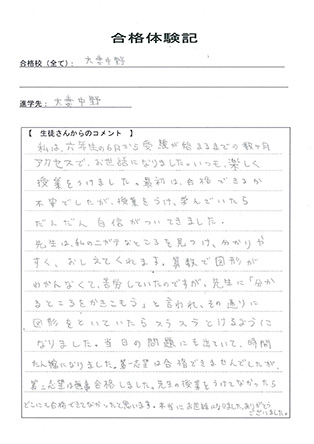 合格体験記
合格校(全て): 大妻中野
進学先: 大妻中野
【 生徒さんからのコメント 】
私は、六年生の6月から受験が始まるまでの数ヶ月
アクセスで、お世話になりました。いつも、楽しく
授業をうけました。最初は、合格できるか
不安でしたが、授業をうけ、学んでいたら
だんだん自信がついてきました。
先生は、私のニガテなところを見つけ、分かりや
すく、おしえてくれます。算数で図形が
わかんなくて、苦労していたのですが、先生に「分か
るところをかきこもう」と言われ、その通りに
図形をといていたらスラスラとけるように
なりました。当日の問題にも出ていて、時間
たん縮になりました。第一志望は合格できませんでしたが、
第二志望は無事合格しました。先生の授業をうけてなかったら
どこにも合格できてなかったと思います。本当にお世話になりました。ありがとう
ございました。